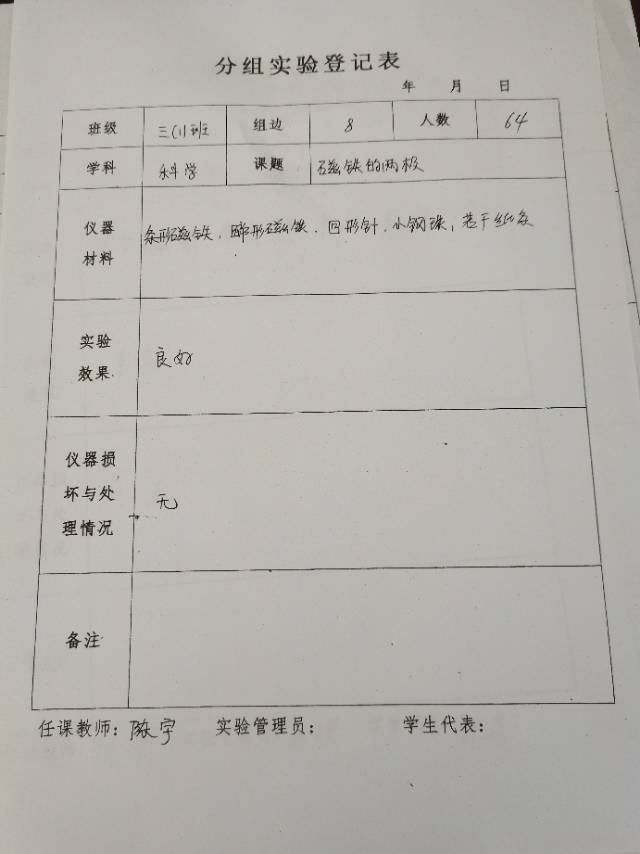 分组实验登记表
年 月 日
班级 三(1)班 组边 8 人数 64
学科 科学 课题 磁铁的两极
仪器材料 条形磁铁、蹄形磁铁、回形针、小钢珠、若干纸条
实验效果 良好
仪器损坏与处理情况 无
备注
任课教师：陈宇 实验管理员： 学生代表：